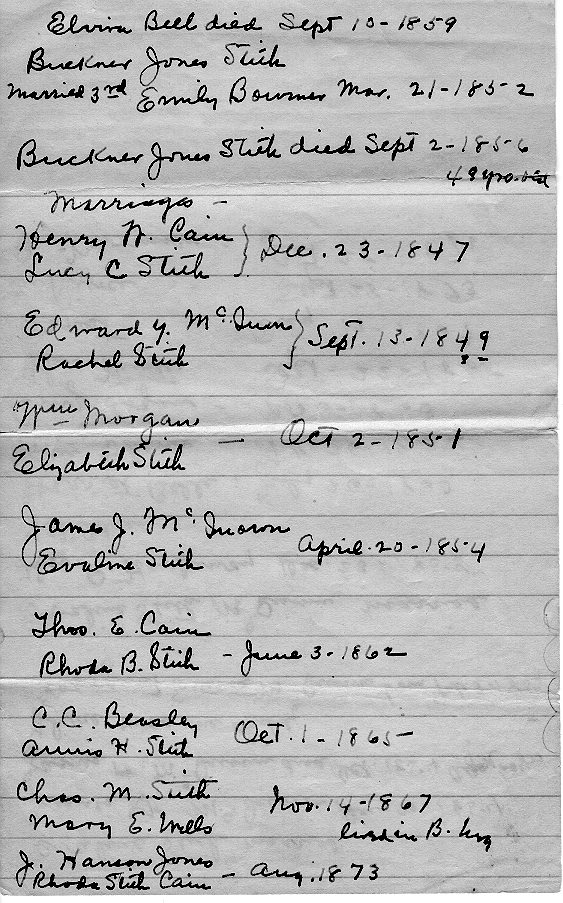 Elvira Bell died Sept 10-1859
Buckner Jones Stith
Married 3rd Emily Bowmer Mar. 21-1852
Buckner Jones Stith died Sept 2-1856
49 yrs.
Marriages -
Henry W. Cain
Lucy C Stith } Dec. 23-1847
Edward Y. McQuown
Rachel Stith } Sept. 13-1849
Wm Morgan
Elizabeth Stith - Oct 2-1851
James J. McQuown
Evaline Stith April 20-1854
Thos. E. Cain
Rhoda B. Stith - June 3-1862
C.C. Beasley
H. Stith Oct. 1-1865
Chas. M. Stith
Mary E. Wells Nov. 14-1867
lived in B.
J. Hanson Jones
Rhoda Stith Cain - Aug. 1873